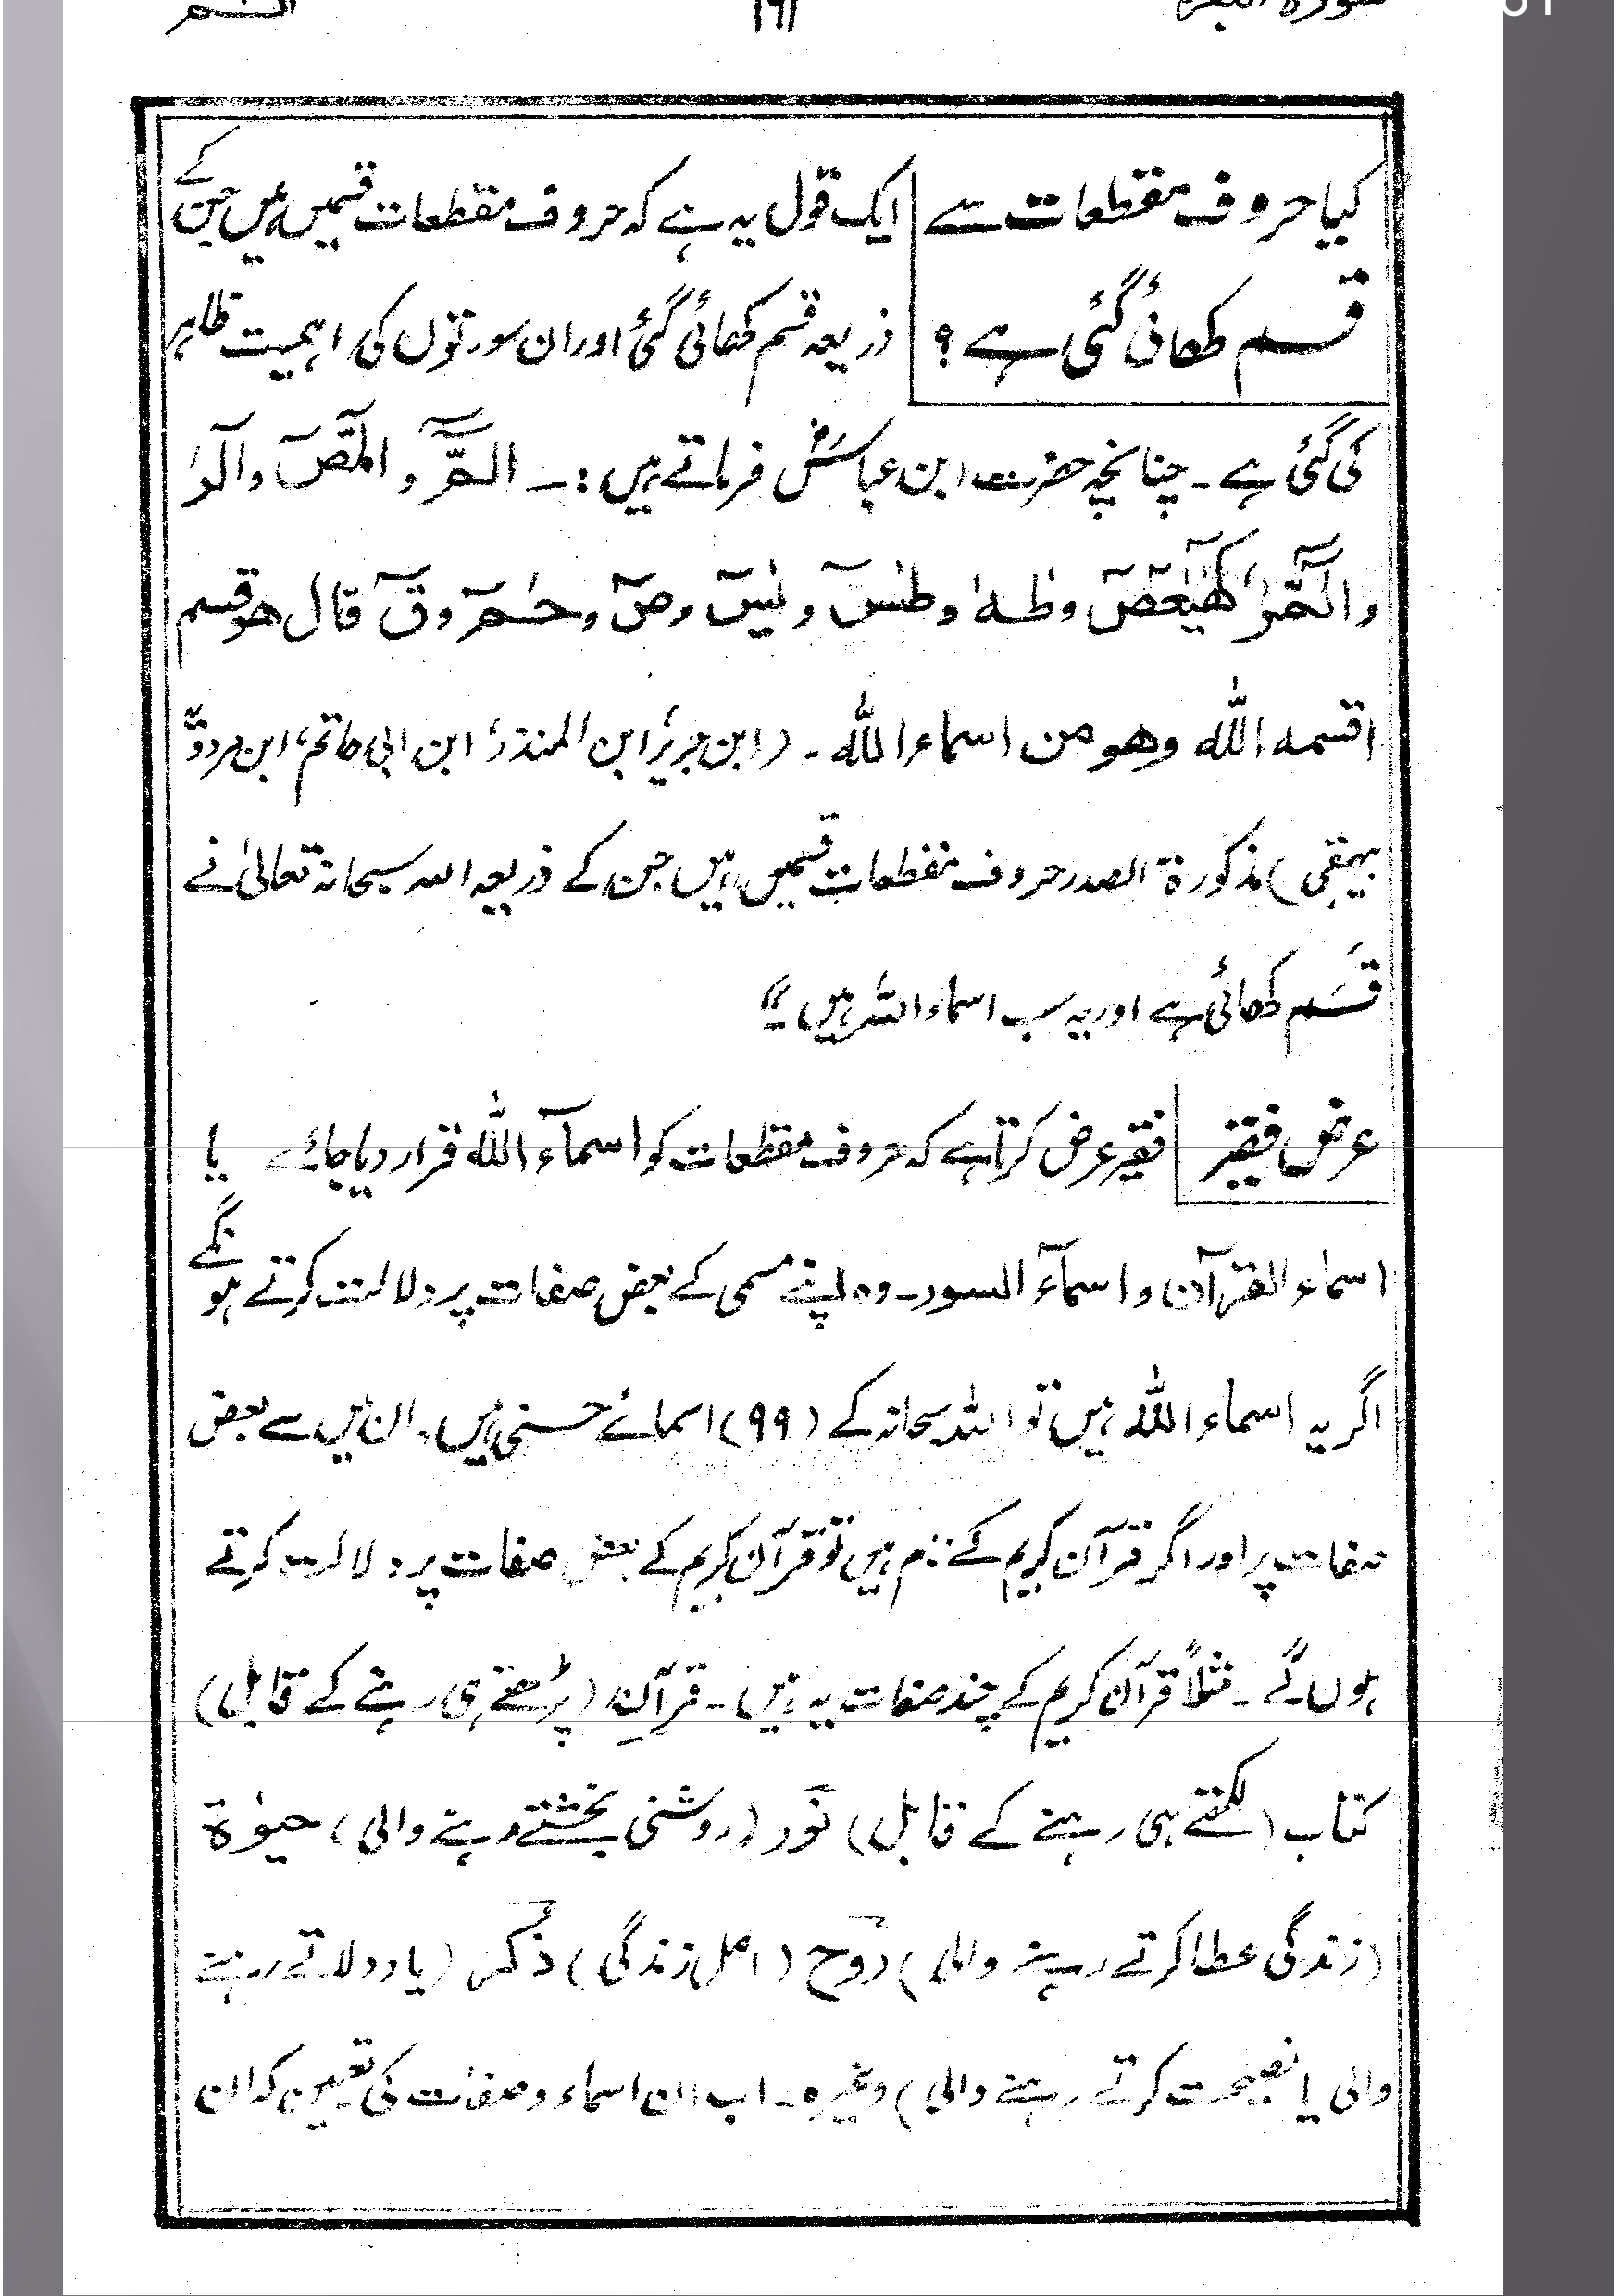 سورة البقرة ١٦١ الٓـمّٓ
کیا حروف مقطعات سے ایک قول یہ ہے کہ حروف مقطعات قسمیں ہیں جن کے
قسم کھائی گئی ہے؟ ذریعہ قسم کھائی گئی اور ان سورتوں کی اہمیت ظاہر
کی گئی ہے۔ چنانچہ حضرت ابن عباسؓ فرماتے ہیں:۔ الٓـمّٓ و الٓمّٓصٓ و الٓرٰ
و الٓـمّٓرٰ کٓھٰیٰعٓصٓ و طٰـهٰ و طٰسٓ و یٰسٓ و صٓ و حٰـمٓ و قٓ قال هو قسم
اقسمه اللّٰه وهو من اسماء اللّٰه ۔ (ابن جریر، ابن المنذر، ابن ابی حاتم، ابن مردویہ
بیہقی) مذکورۃ الصدر حروف مقطعات قسمیں ہیں جن کے ذریعہ اللہ سبحانہ تعالیٰ نے
قَسَم کھائی ہے اور یہ سب اسماء اللہ ہیں ۔"
عرض فقیر فقیر عرض کرتا ہے کہ حروف مقطعات کو اسمآء اللّٰہ قرار دیا جائے یا
اسماء القرآن و اسمآء السور۔ وہ اپنے مسمی کے بعض صفات پر دلالت کرتے ہونگے
اگر یہ اسماء اللّٰہ ہیں تو اللہ سبحانہ کے (۹۹) اسمائے حسنیٰ ہیں۔ ان میں سے بعض
صفات پر اور اگر قرآن کریم کے نام ہیں تو قرآن کریم کے بعض صفات پر دلالت کرتے
ہوں گے ۔ مثلاً قرآن کریم کے چند صفات یہ ہیں ۔ قرآن (پڑھتے ہی رہنے کے قابل)
کتاب (لکھتے ہی رہنے کے قابل) نُور (روشنی بخشتے رہنے والی) حیوٰۃ
(زندگی عطا کرتے رہنے والی) رُوح (اصل زندگی) ذکر (یاد دلاتے رہنے
والی یا نصیحت کرتے رہنے والی) وغیرہ۔ اب ان اسماء و صفات کی تعیین کہ ان